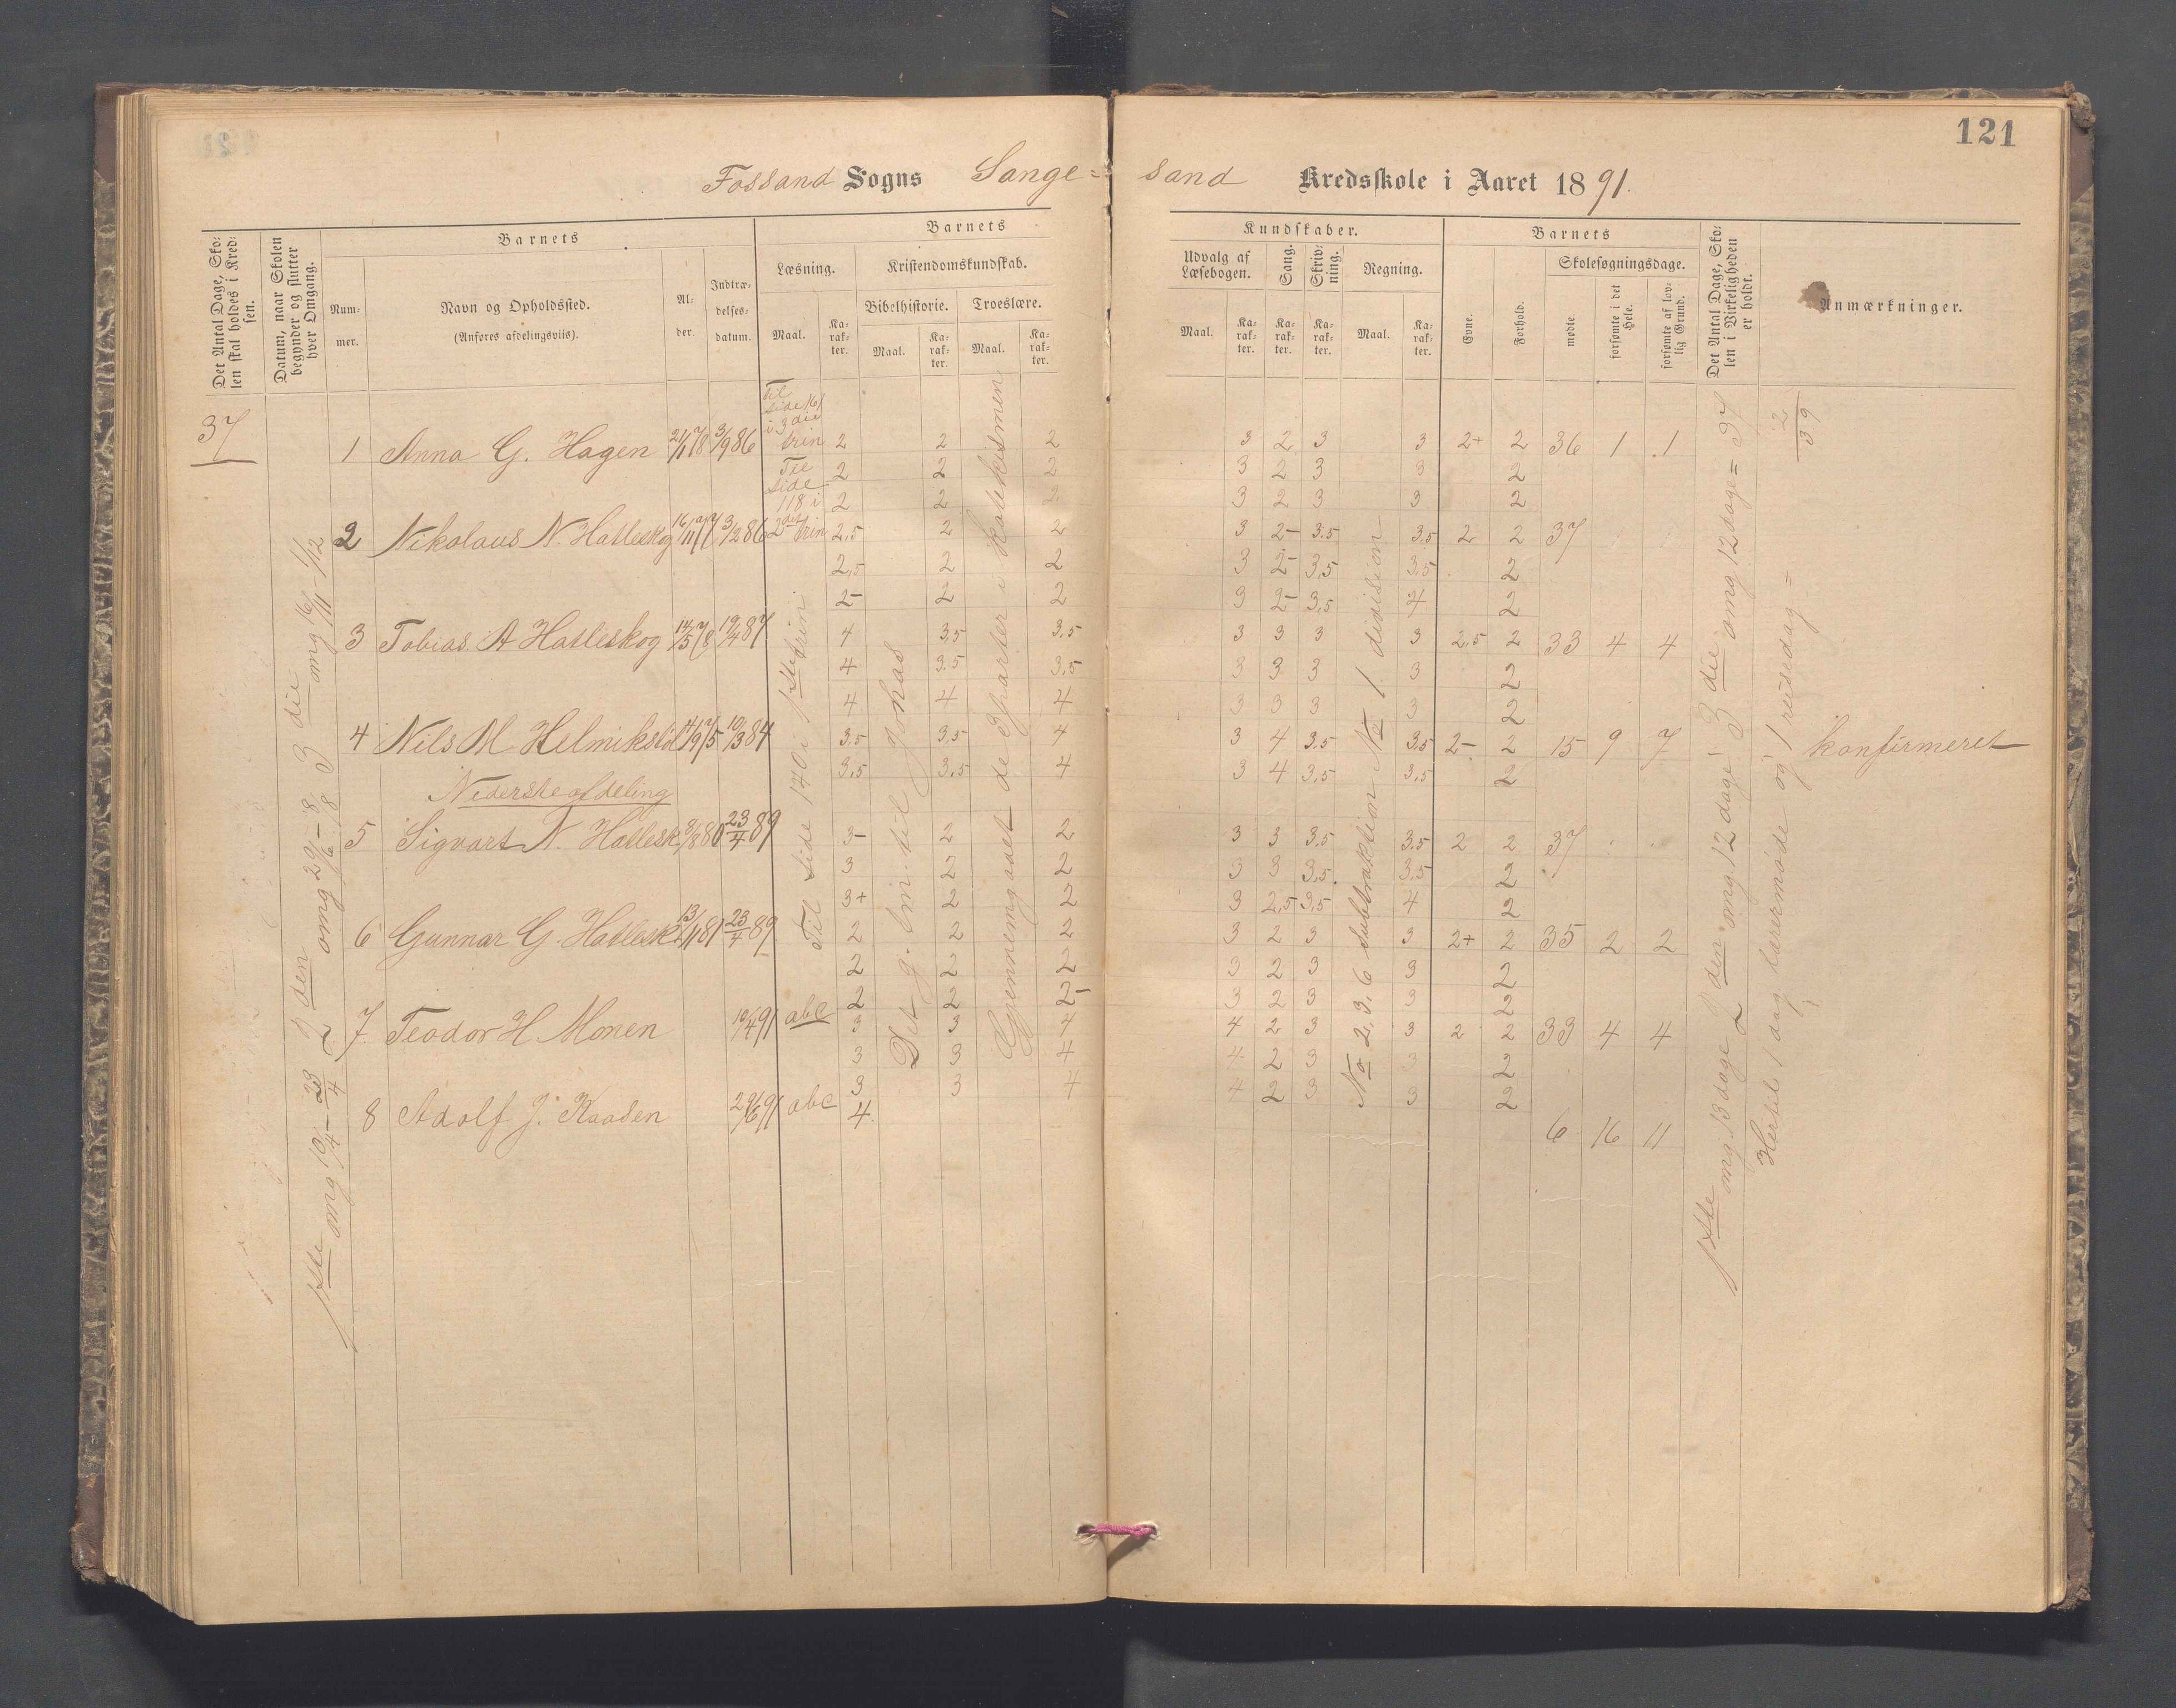 121
Fossand Sogns Sange= sand Kredsskole i Aaret 1891.
Det Antal Dage, Sko=
len skal holdes i Kred=
sen.
Datum, naar Skolen
begynder og slutter
hver Omgang.
Barnets
Num=
mer.
Navn og Opholdssted.
(Anføres afdelingsviis).
Al=
der.
Indtræ=
delses=
datum.
Barnets
Læsning.
Maal.
Ka=
rak=
ter.
Kristendomskundskab.
Bibelhistorie.
Maal.
Ka=
rak=
ter.
Troeslære.
Maal.
Ka=
rak=
ter.
Kundskaber.
Udvalg af
Læsebogen.
Maal.
Ka=
rak=
ter.
Sang.
Ka=
rak=
ter.
Skriv=
ning.
Ka=
rak=
ter.
Regning.
Maal.
Ka=
rak=
ter.
Barnets
Evne.
Forhold.
Skolesøgningsdage.
mødte
forsømte i det
Hele.
forsømte af lov=
lig Grund.
Det Antal Dage, Sko=
len i Virkeligheden
er holdt.
Anmærkninger.
37
1ste omg 10/4 - 23/4 2den omg 29/6 - 8/8 3die omg 16/11 - 1/12
Til
side 161
i 3die
trin
1 Anna G. Hagen 21/1 78 3/9 86 2 2 2 3 2 3 3 2+ 2 36 1 1
Til
side
118 i
2det trin
2 2 2 3 2 3 3 2
2 2 2 3 2 3 3 2
2 Nikolaus N. Hatleskog 16/11 77 3/2 86 2,5 2 2 3 2- 3.5 3.5 2 2 37
2,5 2 2 3 2- 3,5 3,5 2
2- 2 2 3 2- 3,5 4 2
3 Tobias A Hatleskog 14/5 78 19/4 87 4 3,5 3.5 3 3 3 3 2,5 2 33 4 4
4 3.5 3,5 3 3 3 3 2
4 4 4 3 3 3 3 2
4 Nils M. Helmikstøl 14/9 75 10/3 84 3,5 3,5 4 3 4 3,5 3,5 2- 2 15 9 7 konfirmeret
3,5 3,5 4 3 4 3,5 3,5 2
Nederste afdeling
5 Sigvart N. Hatlesk. 8/8 80 23/4 89 3- 2 2 3 3 3,5 3,5 2 2 37
3 2 2 3 3 3,5 3,5 2
3+ 2 2 3 2,5 3,5 4 2
6 Gunnar G. Hatlesk. 13/1 81 23/4 89 2 2 2 3 2 3 3 2+ 2 35 2 2
2 2 2 3 2 3 3 2
2 2 2- 3 2 3 3 2
7 Teodor H. Monen 10/4 91 abc 3 3 4 4 2 3 3 2 2 33 4 4
3 3 4 4 2 3 3 2
3 3 4 4 2 3 3 2
8 Adolf J. Kaasen 29/6 91 abc 4. 6 16 11
Til side 170 i 1ste trin
Det g. tm. til Johas
Gjennemgaaet de 3 parter i katekismen
No 2, 3, 6 Subtraktion No 1 division
1ste omg. 13 dage 2den omg. 12 dage 3die omg 12 dage = 37
2
39
Hertil 1 dag lærermøde og 1 reisedag =